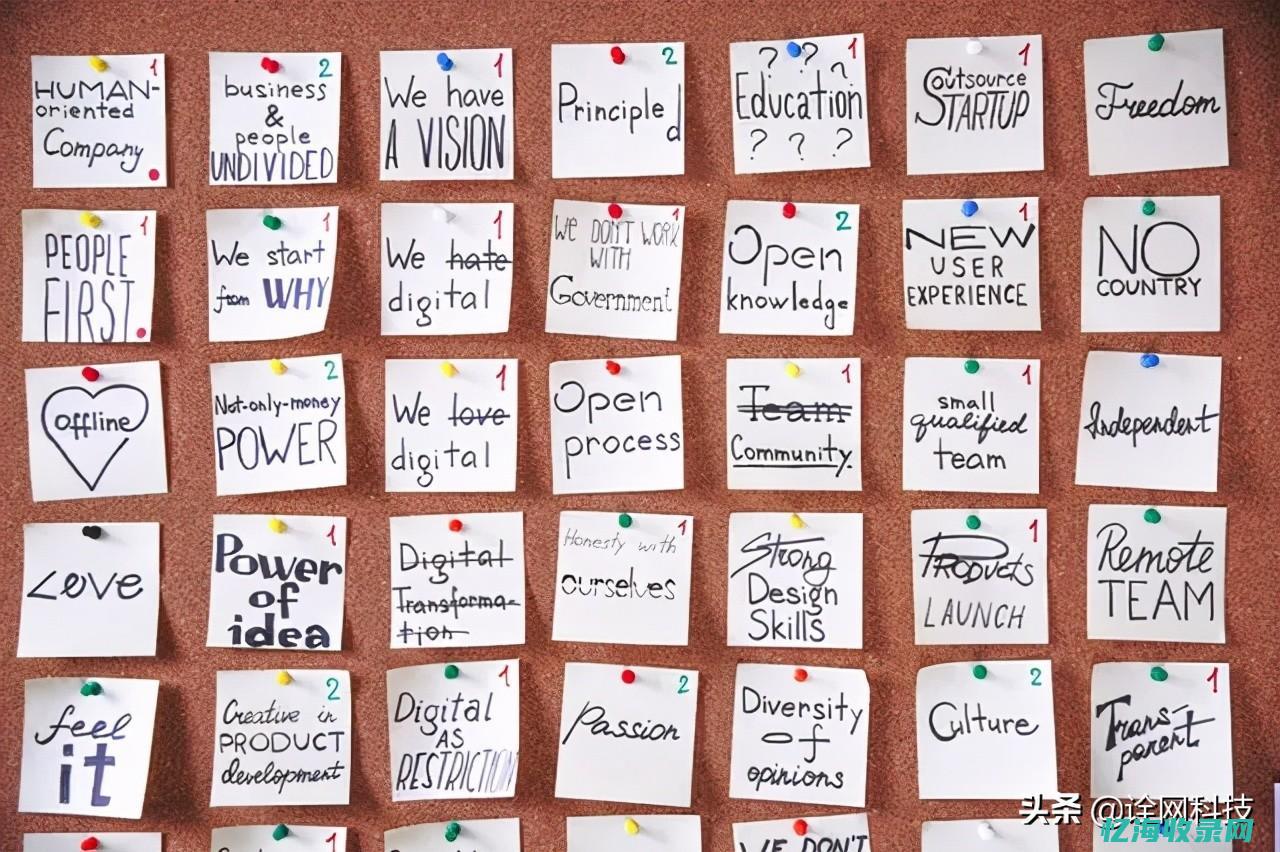 HUMAN-
oriented
Company
1
business
&
people
UNDIVIDED
2
We have
A VISION
1
Principled
2
? ? ?
Education
? ? ?
1
Outsource
STARTUP
1
Freedom
PEOPLE
FIRST.
1
We start
from WHY
1
We hate
digital
1
We DON'T WORK
WITH
Government
1
Open
knowledge
2
NEW
USER
EXPERIENCE
1
NO
COUNTRY
offline
Not-only-money
POWER
2
We love
digital
1
Open
process
Team
Community.
1
small
qualified
team
1
Independent
Love
Power
of
idea
1
Digital
Transforma-
tion
Honesty with
ourselves
1
Strong
Design
Skills
PRODUCTS
LAUNCH
1
Remote
TEAM
feel
it
Creative in
PRODUCT
development
2
Digital
AS
RESTRICTION
1
Passion
2
Diversity
of
opinions
Culture
2
Trans-
parent
1
1
WE DON'T
头条 @诠网科技
亿海收录网